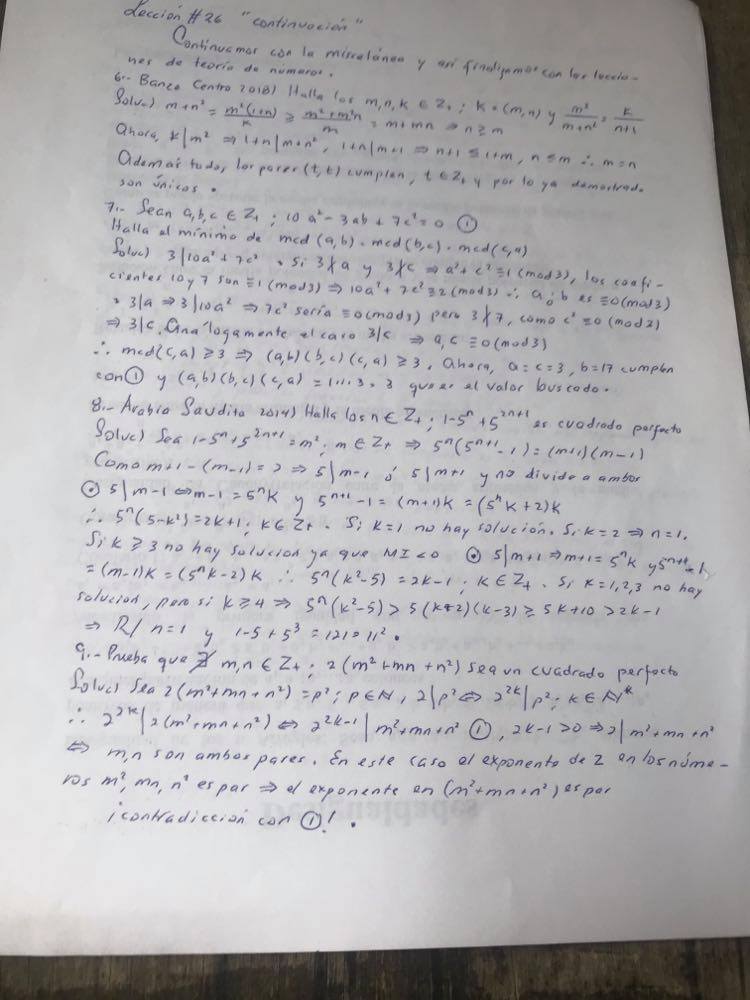 Lección #26 "continuación"
Continuamos con la miscelánea y así finalizamos con las leccio-
nes de teoría de números.
6.- Banco Centro 2018) Halla los m,n,k ∈ Z₊; k=(m,n) y m²/(m+n²) = k/(n+1)
Soluc) m+n² = m²(1+n)/k ≥ (m²+m²n)/m = m+mn ⇒ n≥m
Ahora, k|m² ⇒ 1+n|m+n², 1+n|m+1 ⇒ n+1 ≤ 1+m, n≤m ∴ m=n
Además todos los pares (t,t) cumplen, t∈Z₊ y por lo ya demostrado
son únicos.
7.- Sean a,b,c ∈ Z₊; 10a²-3ab+7c²=0 ①
Halla el mínimo de mcd(a,b)·mcd(b,c)·mcd(c,a)
Soluc) 3|10a²+7c² • Si 3∤a y 3∤c ⇒ a²≡c²≡1(mod3), los coefi-
cientes 10 y 7 son ≡1(mod3) ⇒ 10a²+7c²≡2(mod3) ∴ a ó b es ≡0(mod3)
• 3|a ⇒ 3|10a² ⇒ 7c² sería ≡0(mod3) pero 3∤7, como c²≡0(mod3)
⇒ 3|c. Análogamente el caso 3|c ⇒ a,c ≡0(mod3)
∴ mcd(c,a) ≥3 ⇒ (a,b)(b,c)(c,a) ≥3. Ahora, a=c=3, b=17 cumplen
con ① y (a,b)(b,c)(c,a) = 1·1·3=3 que es el valor buscado.
8.- Arabia Saudita 2014) Halla los n∈Z₊; 1-5ⁿ+5²ⁿ⁺¹ es cuadrado perfecto
Soluc) Sea 1-5ⁿ+5²ⁿ⁺¹=m²; m∈Z₊ ⇒ 5ⁿ(5ⁿ⁺¹-1)=(m+1)(m-1)
Como m+1-(m-1)=2 ⇒ 5|m-1 ó 5|m+1 y no divide a ambos
⊙ 5|m-1 ⇔ m-1=5ⁿk y 5ⁿ⁺¹-1=(m+1)k=(5ⁿk+2)k
∴ 5ⁿ(5-k²)=2k+1; k∈Z₊. Si k=1 no hay solución. Si k=2 ⇒ n=1.
Si k≥3 no hay solución ya que MI<0 ⊙ 5|m+1 ⇒ m+1=5ⁿk y 5ⁿ⁺¹-1
=(m-1)k=(5ⁿk-2)k ∴ 5ⁿ(k²-5)=2k-1; k∈Z₊. Si k=1,2,3 no hay
solución, pero si k≥4 ⇒ 5ⁿ(k²-5)>5(k+2)(k-3)≥5k+10>2k-1
⇒ R/ n=1 y 1-5+5³=121=11².
9.- Prueba que ∄ m,n∈Z₊; 2(m²+mn+n²) sea un cuadrado perfecto
Soluc) Sea 2(m²+mn+n²)=p²; p∈N, 2|p² ⇔ 2²ᵏ|p²; k∈N*
∴ 2²ᵏ|2(m²+mn+n²) ⇔ 2²ᵏ⁻¹|m²+mn+n² ①, 2k-1>0 ⇒ 2|m²+mn+n²
⇔ m,n son ambos pares. En este caso el exponente de 2 en los núme-
ros m², mn, n² es par ⇒ el exponente en (m²+mn+n²) es par
¡contradicción con ①!.